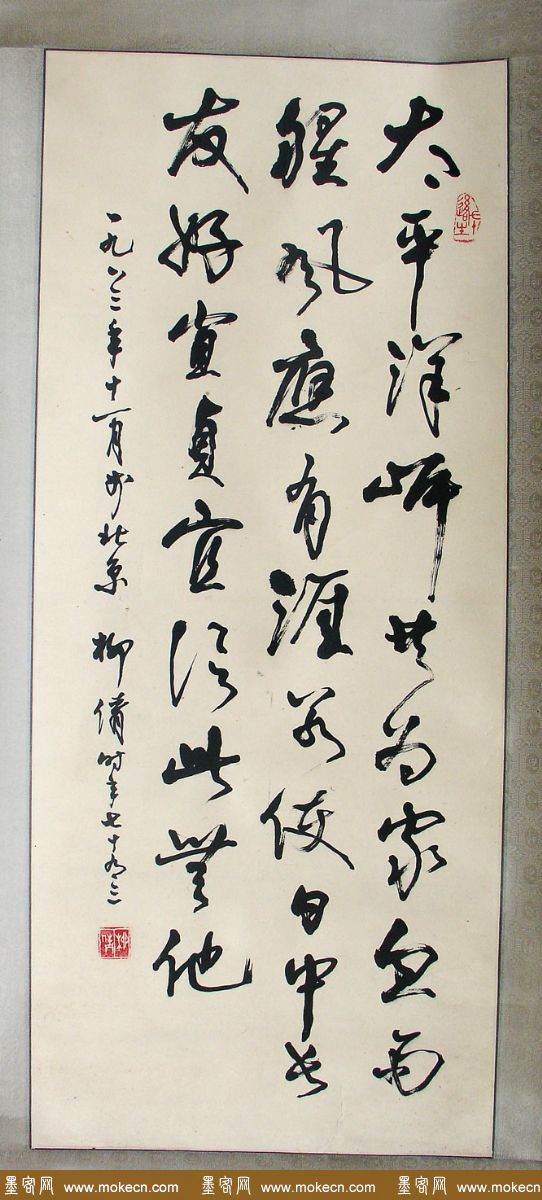 太平洋岸共为家血雨
腥风應有涯若使日中长
友好宜貞宜谅此無他
一九八三年十一月于北京 柳倩时年七十有三
墨客网 www.mokecn.com 墨客网 www.mokecn.com 墨客网 www.mokecn.com